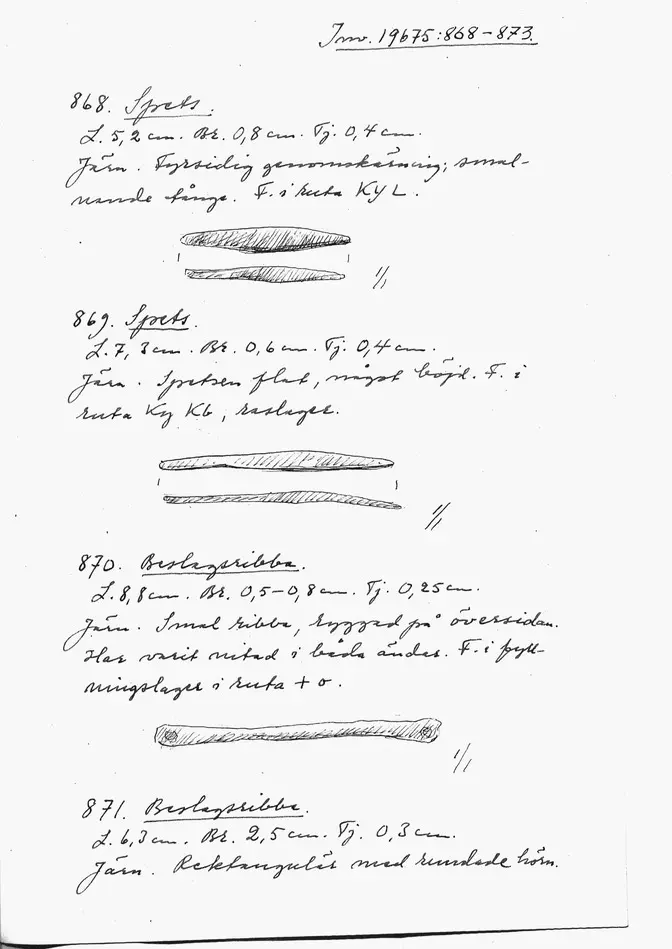 Inv. 19675:868-873.
868. Spets.
L. 5,2 cm. Br. 0,8 cm. Tj. 0,4 cm.
Järn. Fyrsidig genomskärning; smal-
nande tånge. F. i ruta Ky L.
1/1
869. Spets.
L. 7,3 cm. Br. 0,6 cm. Tj. 0,4 cm.
Järn. Spetsen flat, något böjd. F. i
ruta Ky Kb, raslager.
1/1
870. Beslagsribba.
L. 8,8 cm. Br. 0,5-0,8 cm. Tj. 0,25 cm.
Järn. Smal ribba, ryggad på översidan.
Har varit nitad i båda ändar. F. i fyll-
ningslager i ruta + o.
1/1
871. Beslagsribba.
L. 6,3 cm. Br. 2,5 cm. Tj. 0,3 cm.
Järn. Rektangulär med rundade hörn.